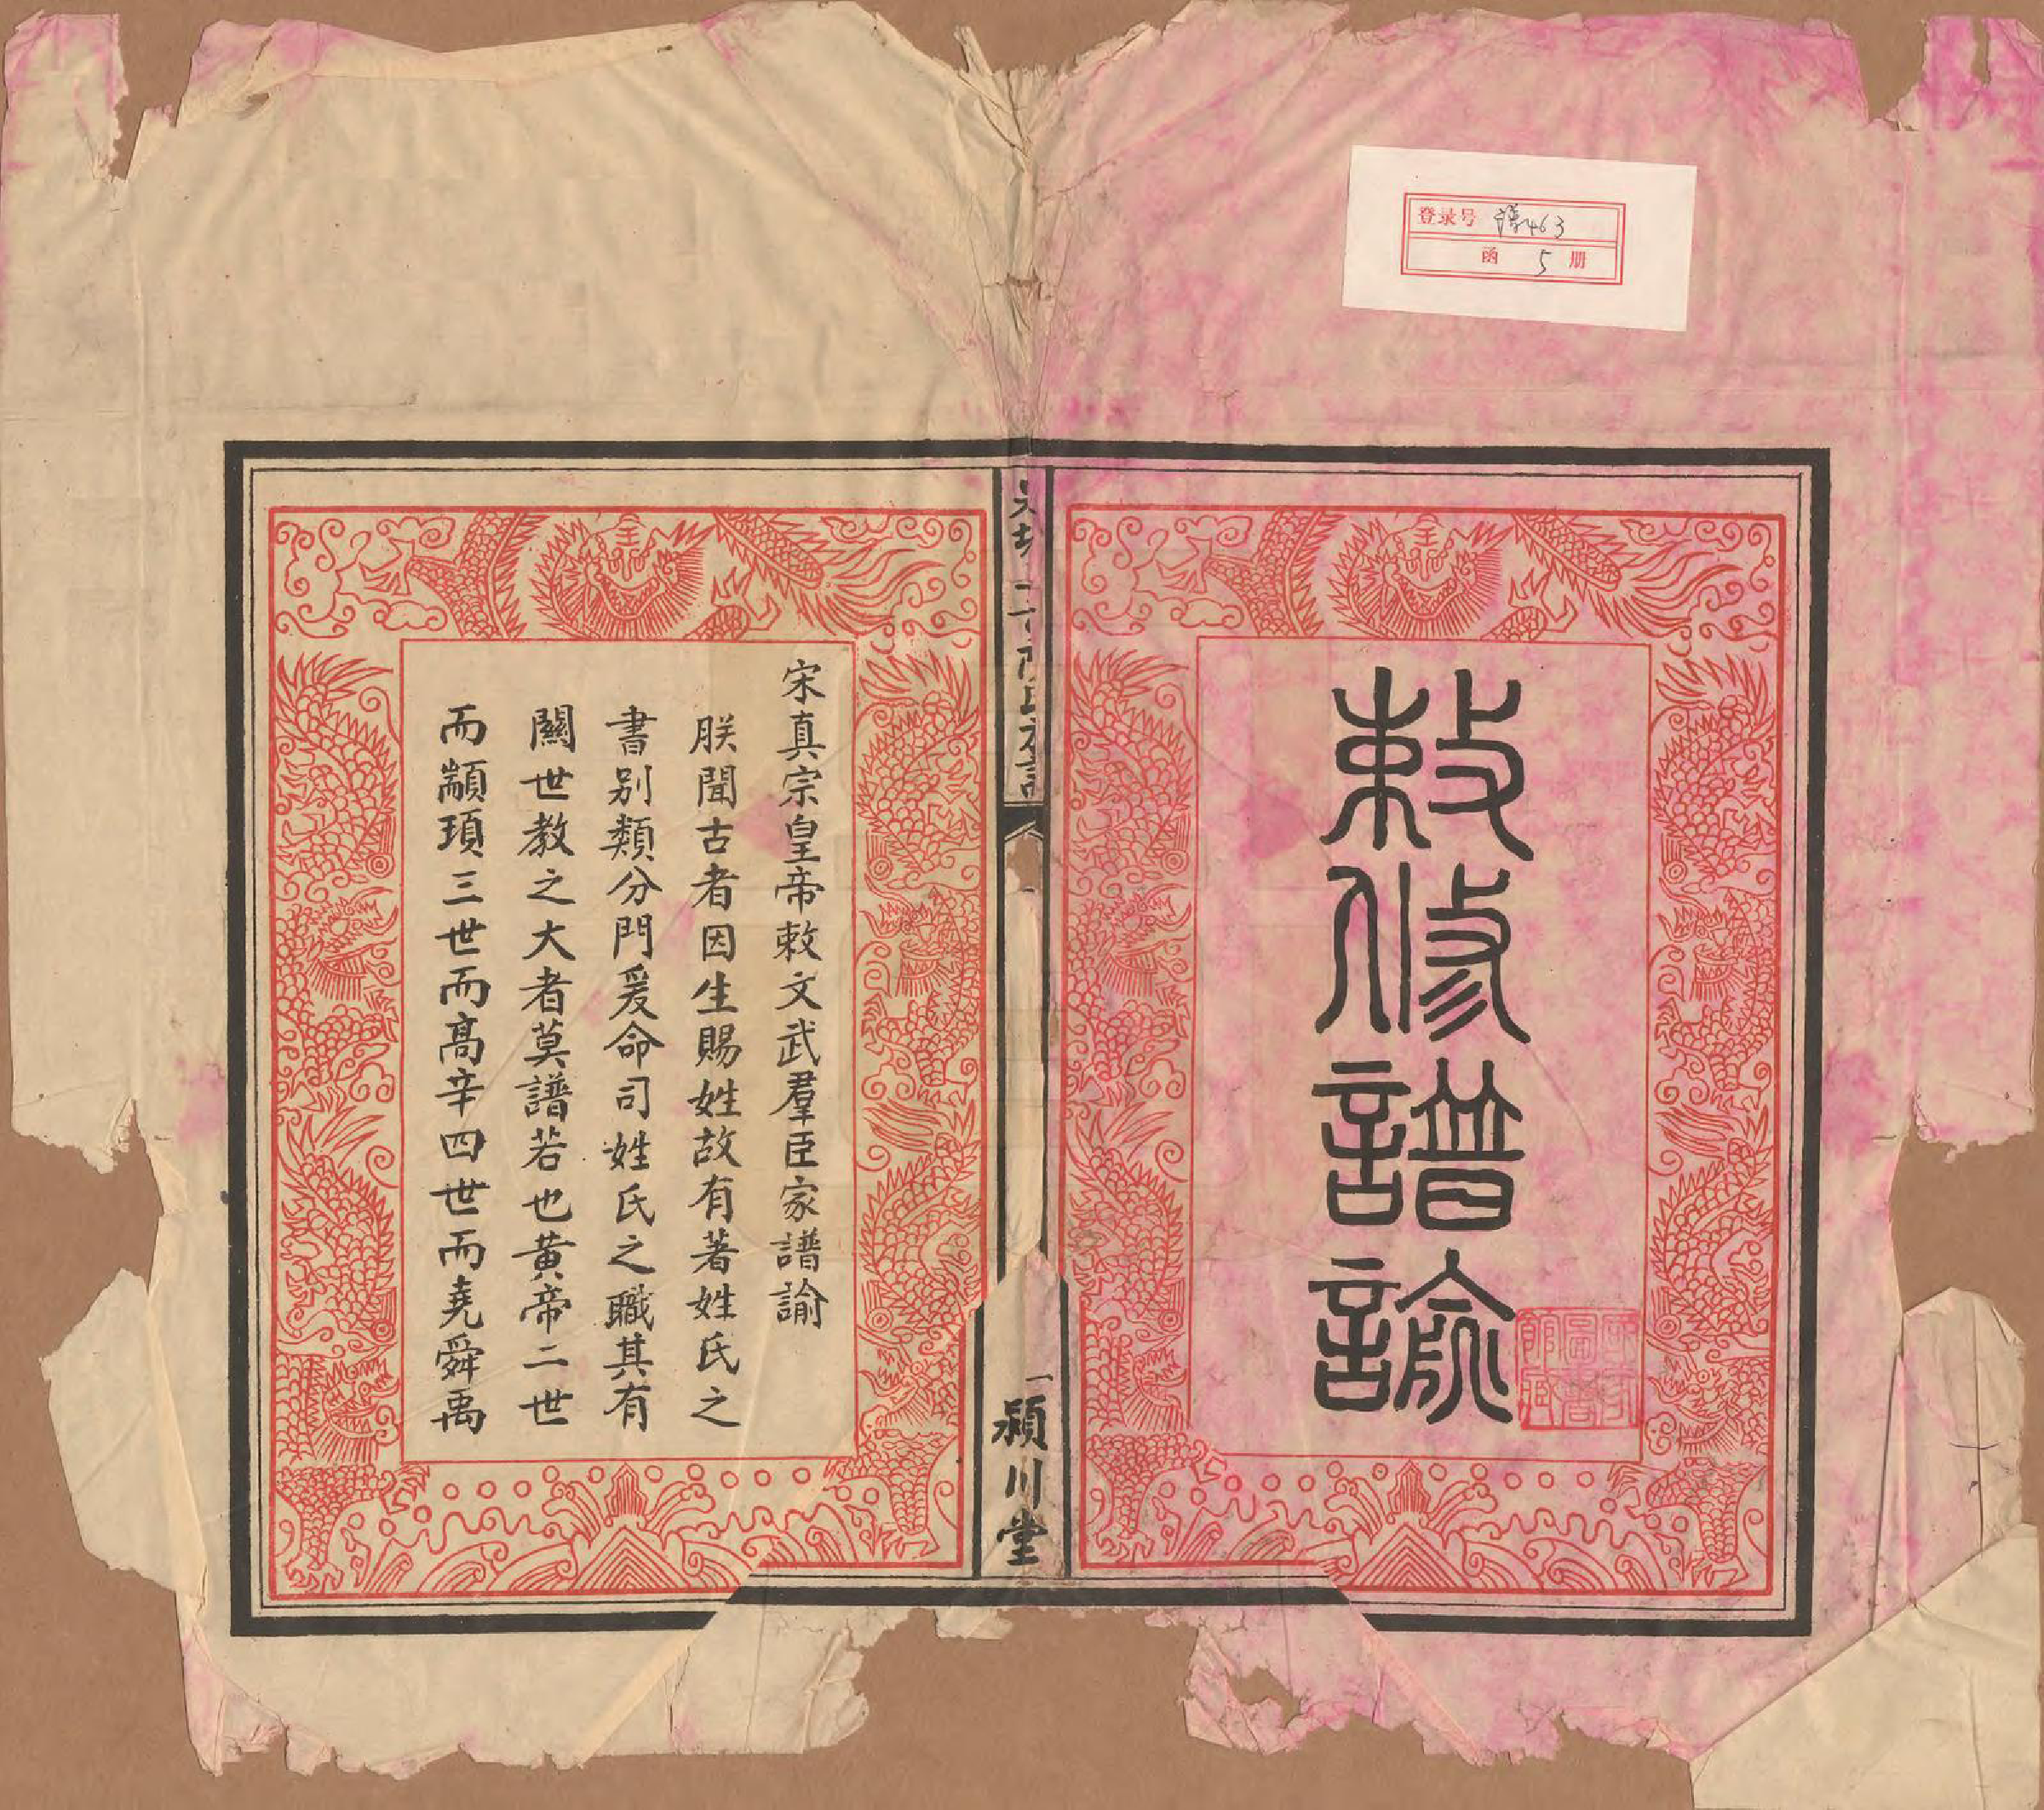 登录号 譜463
函 5 册
敕修譜諭
宋真宗皇帝敕文武羣臣家譜諭
朕聞古者因生賜姓故有著姓氏之
書别類分門爰命司姓氏之職其有
關世教之大者莫譜若也黄帝二世
而顓頊三世而高辛四世而堯舜禹
一
潁川堂